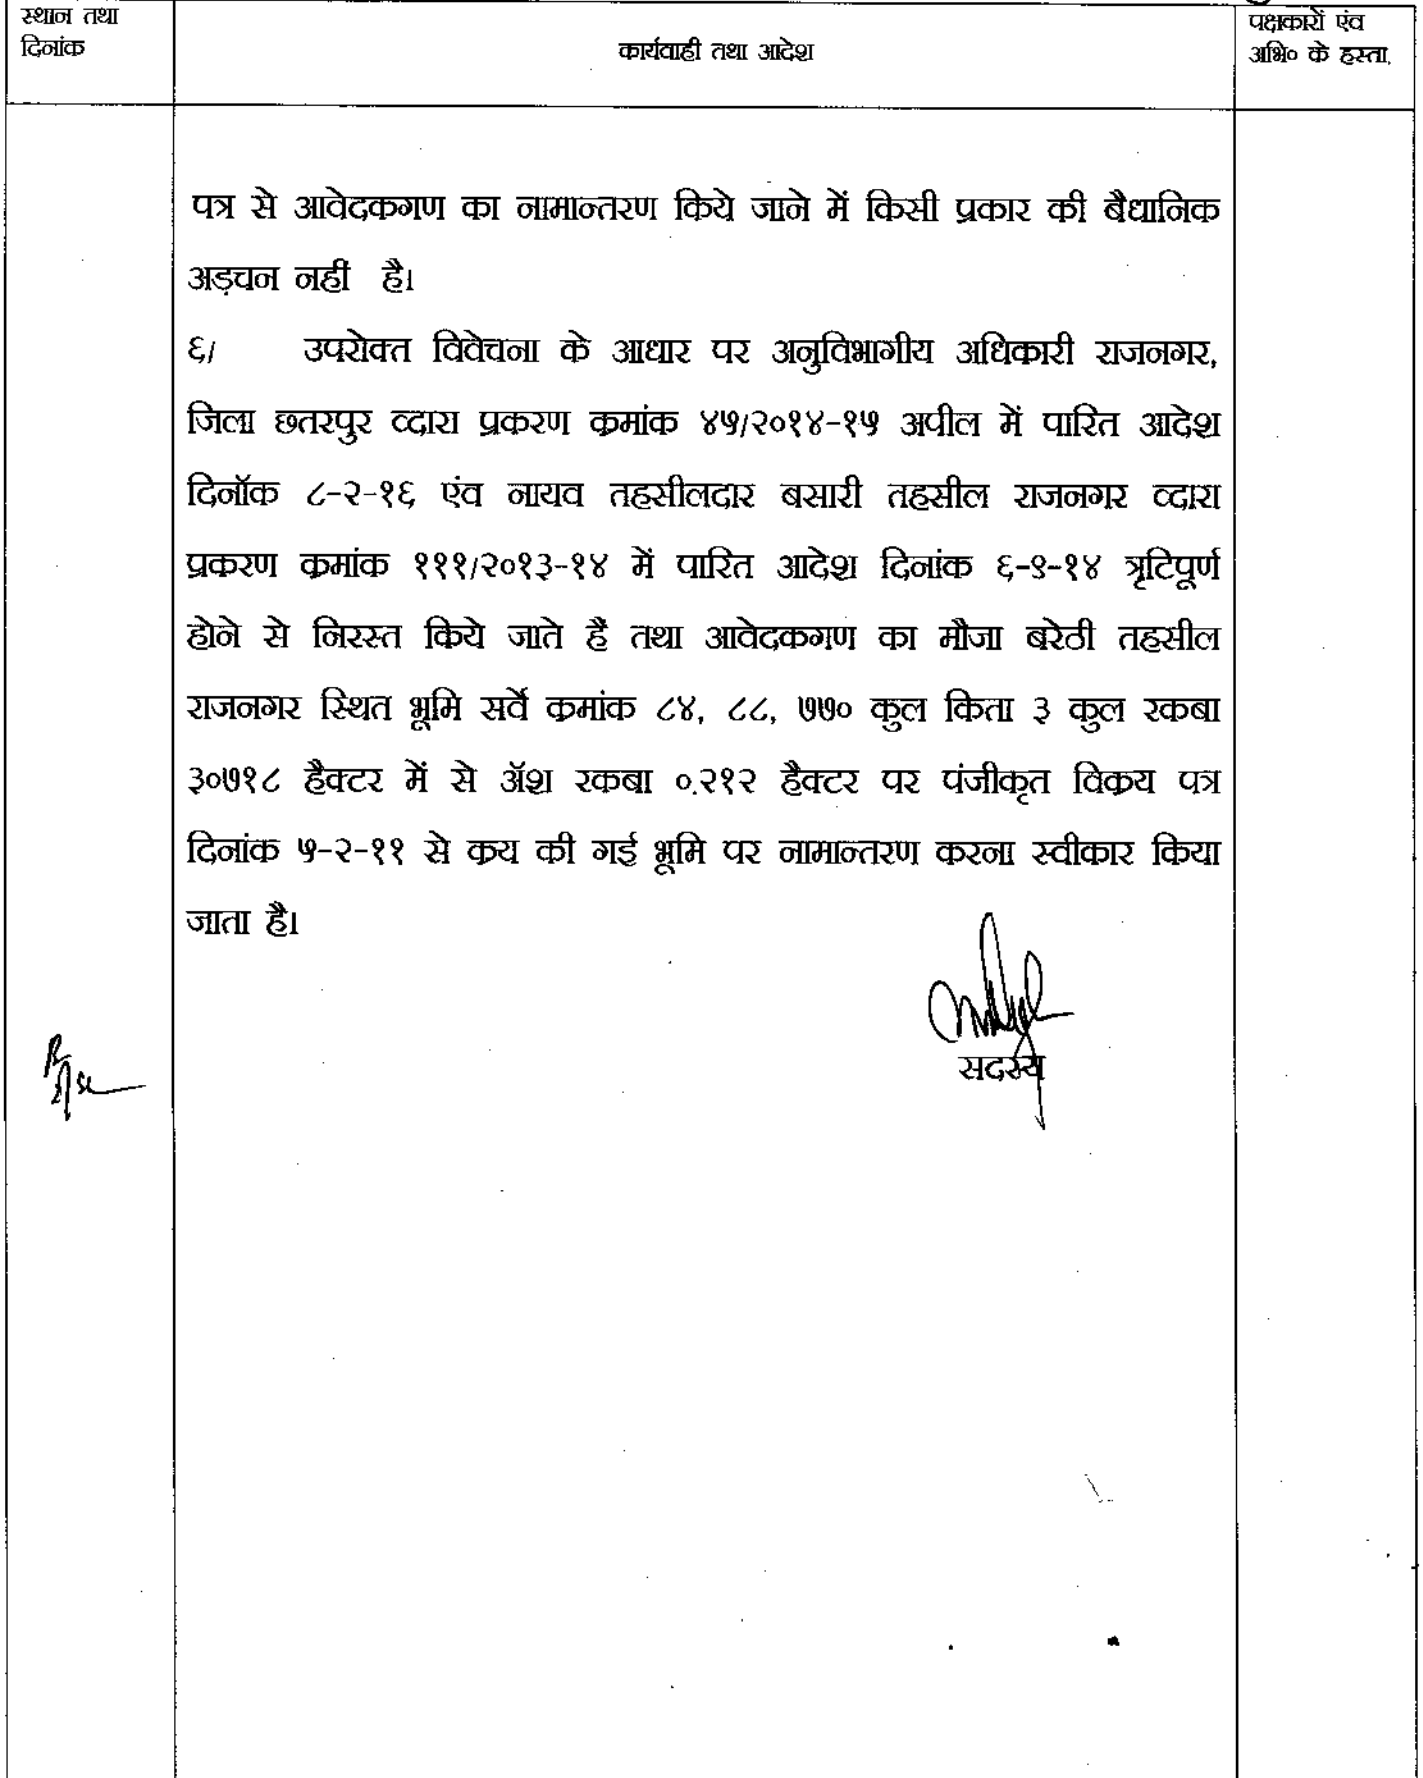 स्थान तथा
दिनांक
कार्यवाही तथा आदेश
पक्षकारों एंव
अभि० के हस्ता.
पत्र से आवेदकगण का नामान्तरण किये जाने में किसी प्रकार की बैधानिक
अड़चन नहीं है।
६/ उपरोक्त विवेचना के आधार पर अनुविभागीय अधिकारी राजनगर,
जिला छतरपुर व्दारा प्रकरण क्रमांक ४५/२०१४-१५ अपील में पारित आदेश
दिनॉक ८-२-१६ एंव नायव तहसीलदार बसारी तहसील राजनगर व्दारा
प्रकरण क्रमांक १११/२०१३-१४ में पारित आदेश दिनांक ६-९-१४ त्रृटिपूर्ण
होने से निरस्त किये जाते हैं तथा आवेदकगण का मौजा बरेठी तहसील
राजनगर स्थित भूमि सर्वे क्रमांक ८४, ८८, ७७० कुल किता ३ कुल रकबा
३०७१८ हैक्टर में से ॲश रकबा ०.२१२ हैक्टर पर पंजीकृत विक्रय पत्र
दिनांक ५-२-११ से क्रय की गई भूमि पर नामान्तरण करना स्वीकार किया
जाता है।
सदस्य